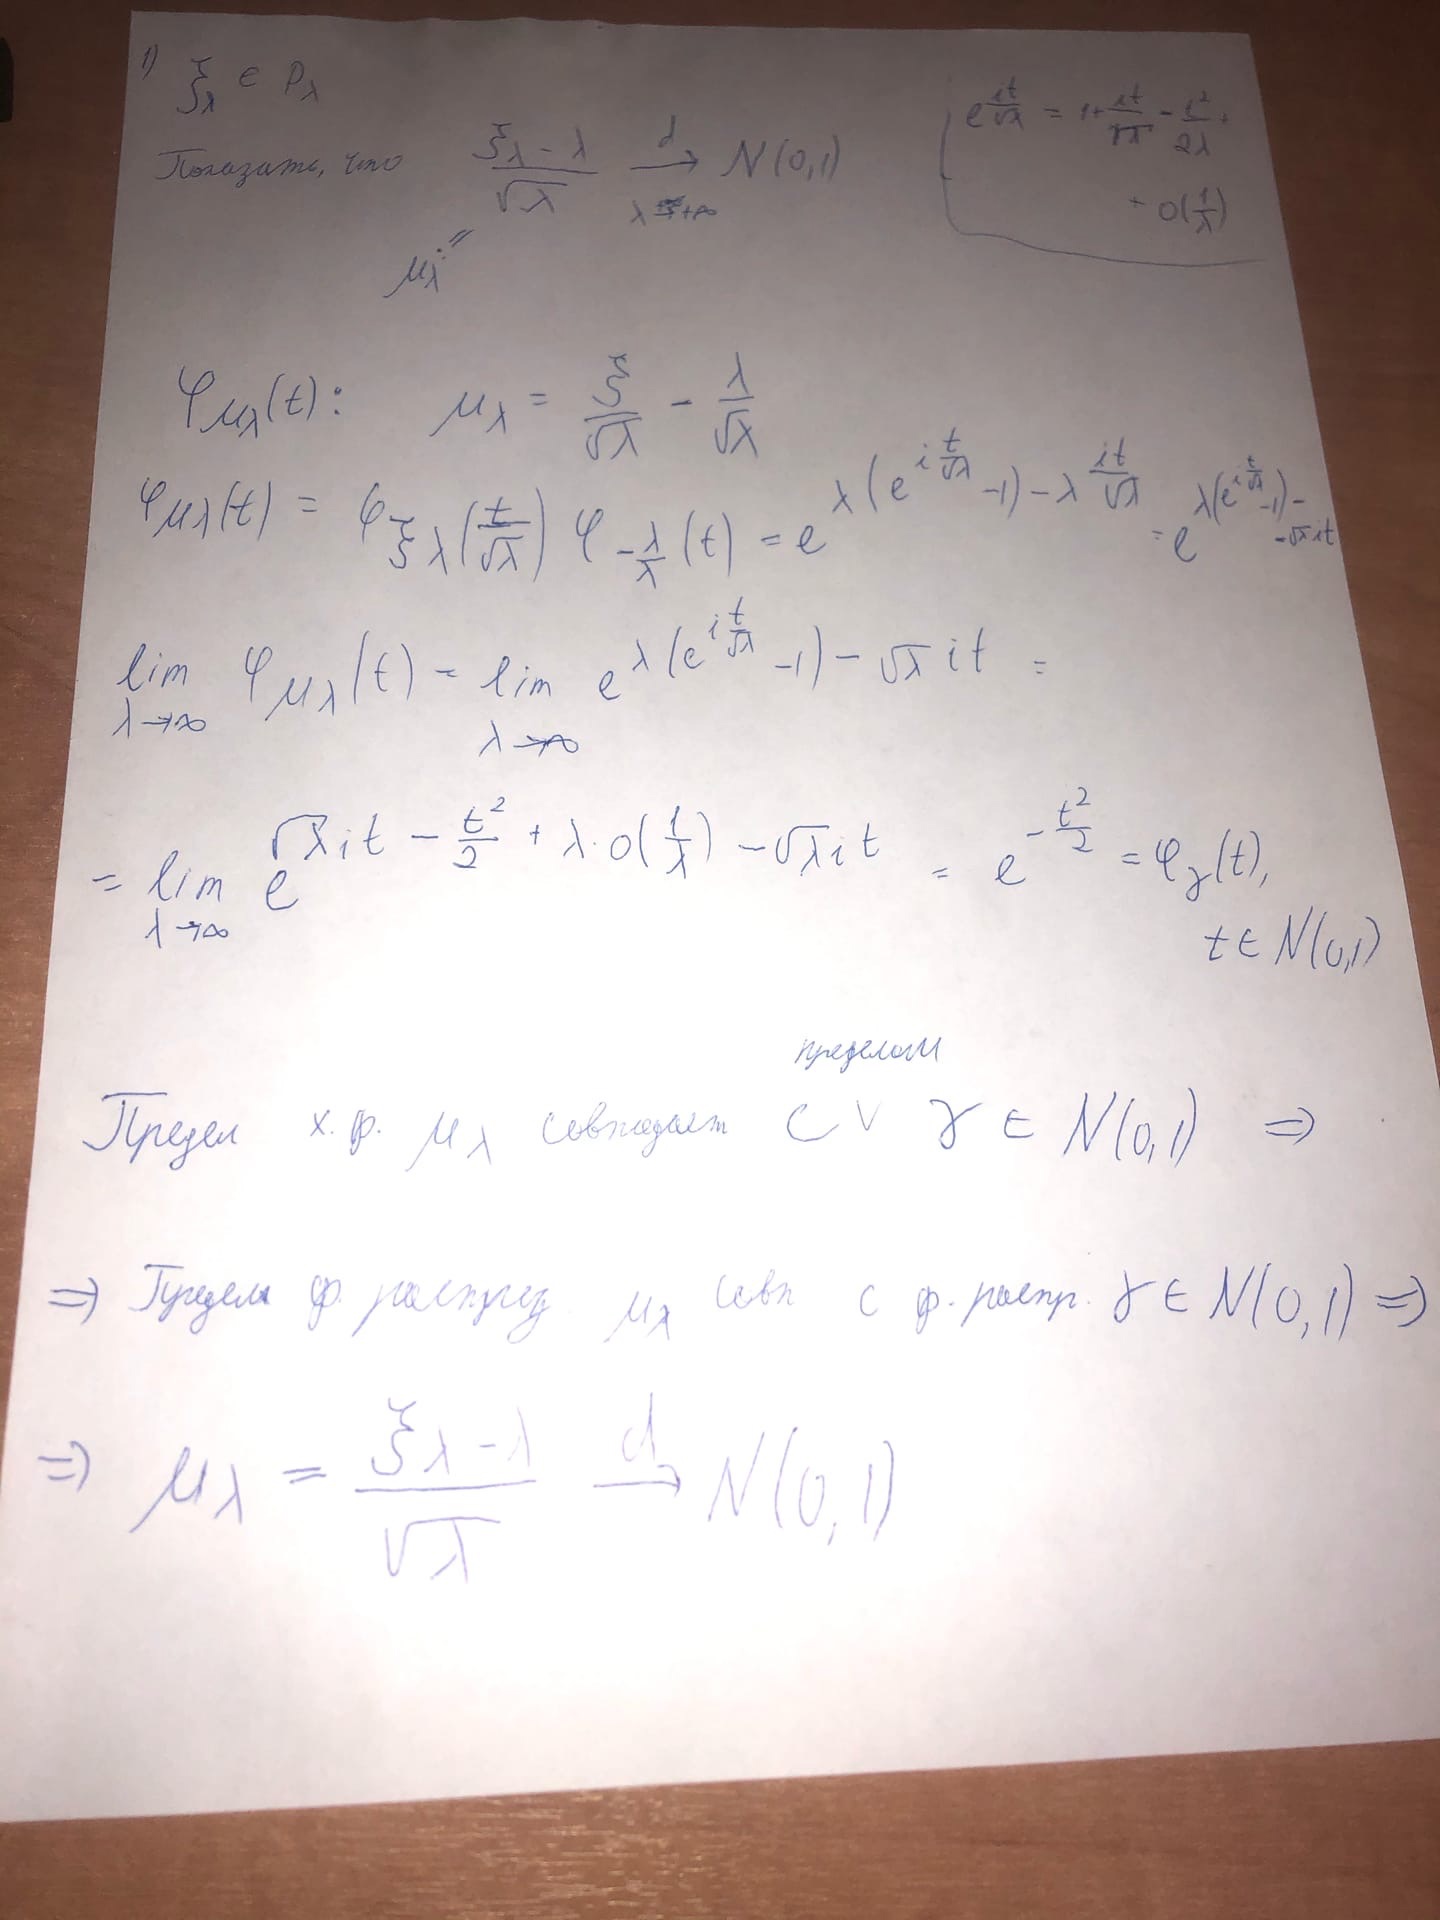 1) ξ_λ ∈ P_λ
Показать, что (ξ_λ - λ)/√λ →^d_{λ→+∞} N(0,1)
μ_λ :=
e^{it/√λ} = 1 + it/√λ - t²/2λ +
+ o(1/λ)
φ_{μ_λ}(t): μ_λ = ξ/√λ - λ/√λ
φ_{μ_λ}(t) = φ_{ξ_λ}(t/√λ) φ_{-λ/λ}(t) = e^{λ(e^{i t/√λ} - 1) - λ it/√λ} = e^{λ(e^{i t/√λ} - 1) - - √λ it}
lim_{λ→∞} φ_{μ_λ}(t) = lim_{λ→∞} e^{λ(e^{i t/√λ} - 1) - √λ it} =
= lim_{λ→∞} e^{√λ it - t²/2 + λ·o(1/λ) - √λ it} = e^{-t²/2} = φ_γ(t),
t ∈ N(0,1)
пределом
Предел х.ф. μ_λ совпадает с ∨ γ ∈ N(0,1) ⇒
⇒ Предел ф. распред. μ_λ совп с ф. распр. γ ∈ N(0,1) ⇒
⇒ μ_λ = (ξ_λ - λ)/√λ →^d N(0,1)